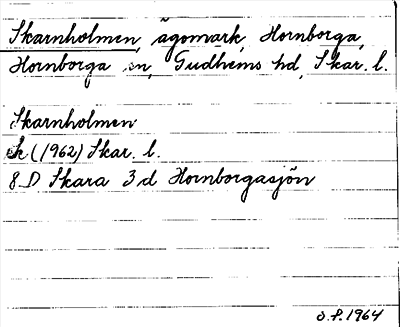 Skarnholmen, ägomark, Hornborga,
Hornborga sn, Gudhems hd, Skar. l.
Skarnholmen
Ek (1962) Skar. l.
8 D Skara 3 d Hornborgasjön
O.P. 1964